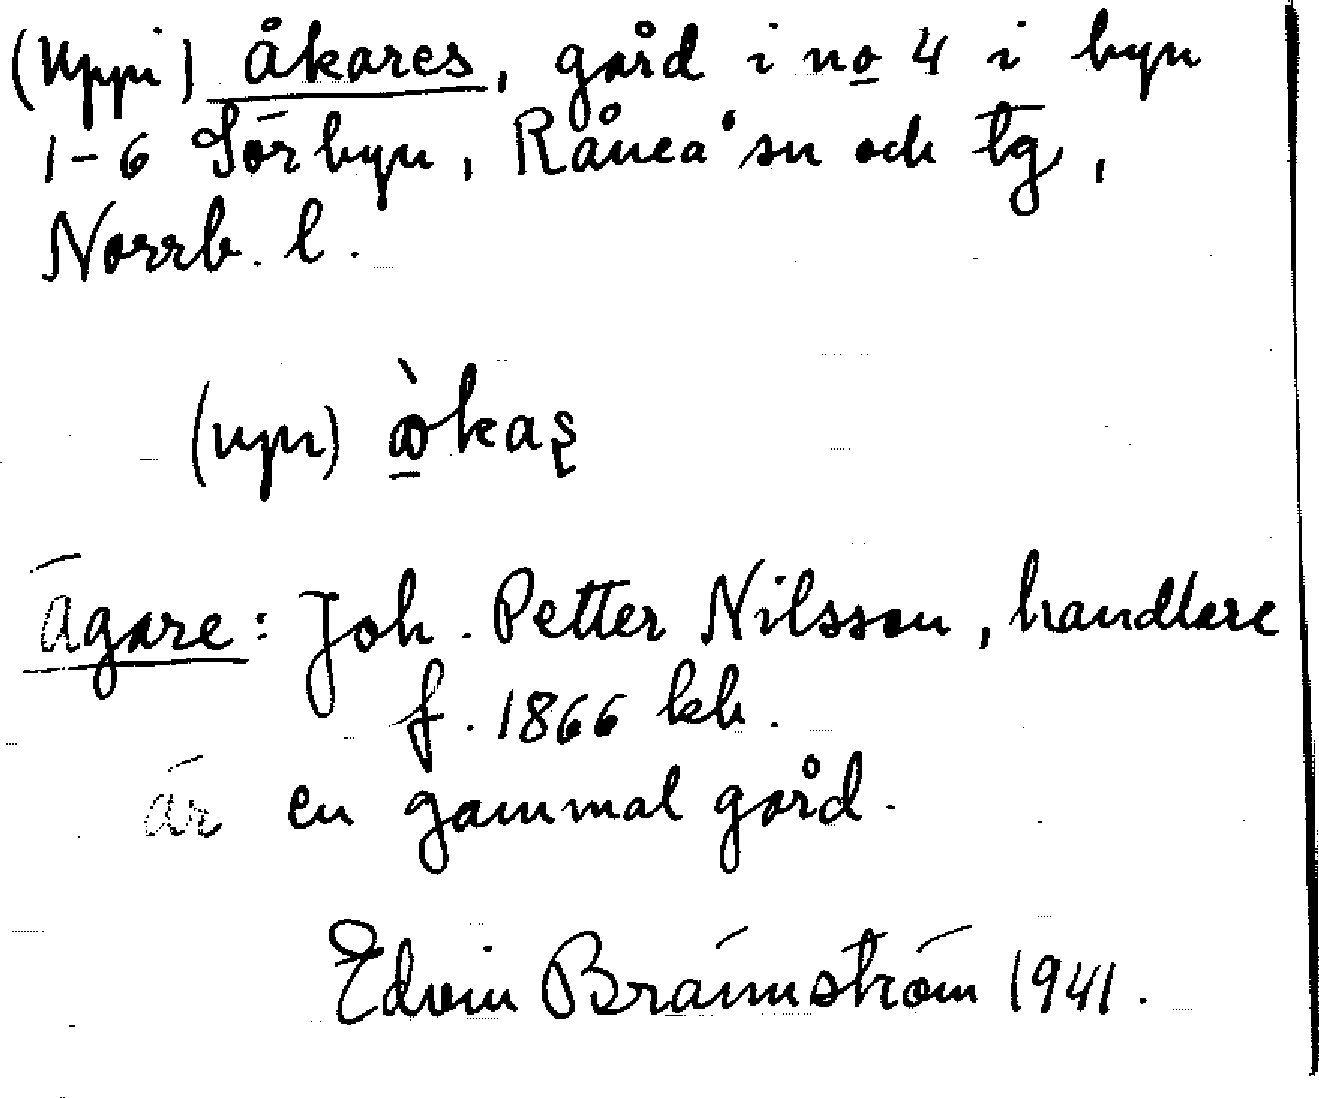 (Uppi) åkares, gård i no 4 i byn
1-6 Sörbyn, Råneå sn och tg,
Norrb. l.
(upn) òkaş
Ägare: Joh. Petter Nilsson, handlare
f. 1866 kh.
är en gammal gård.
Edvin Brännström 1941.